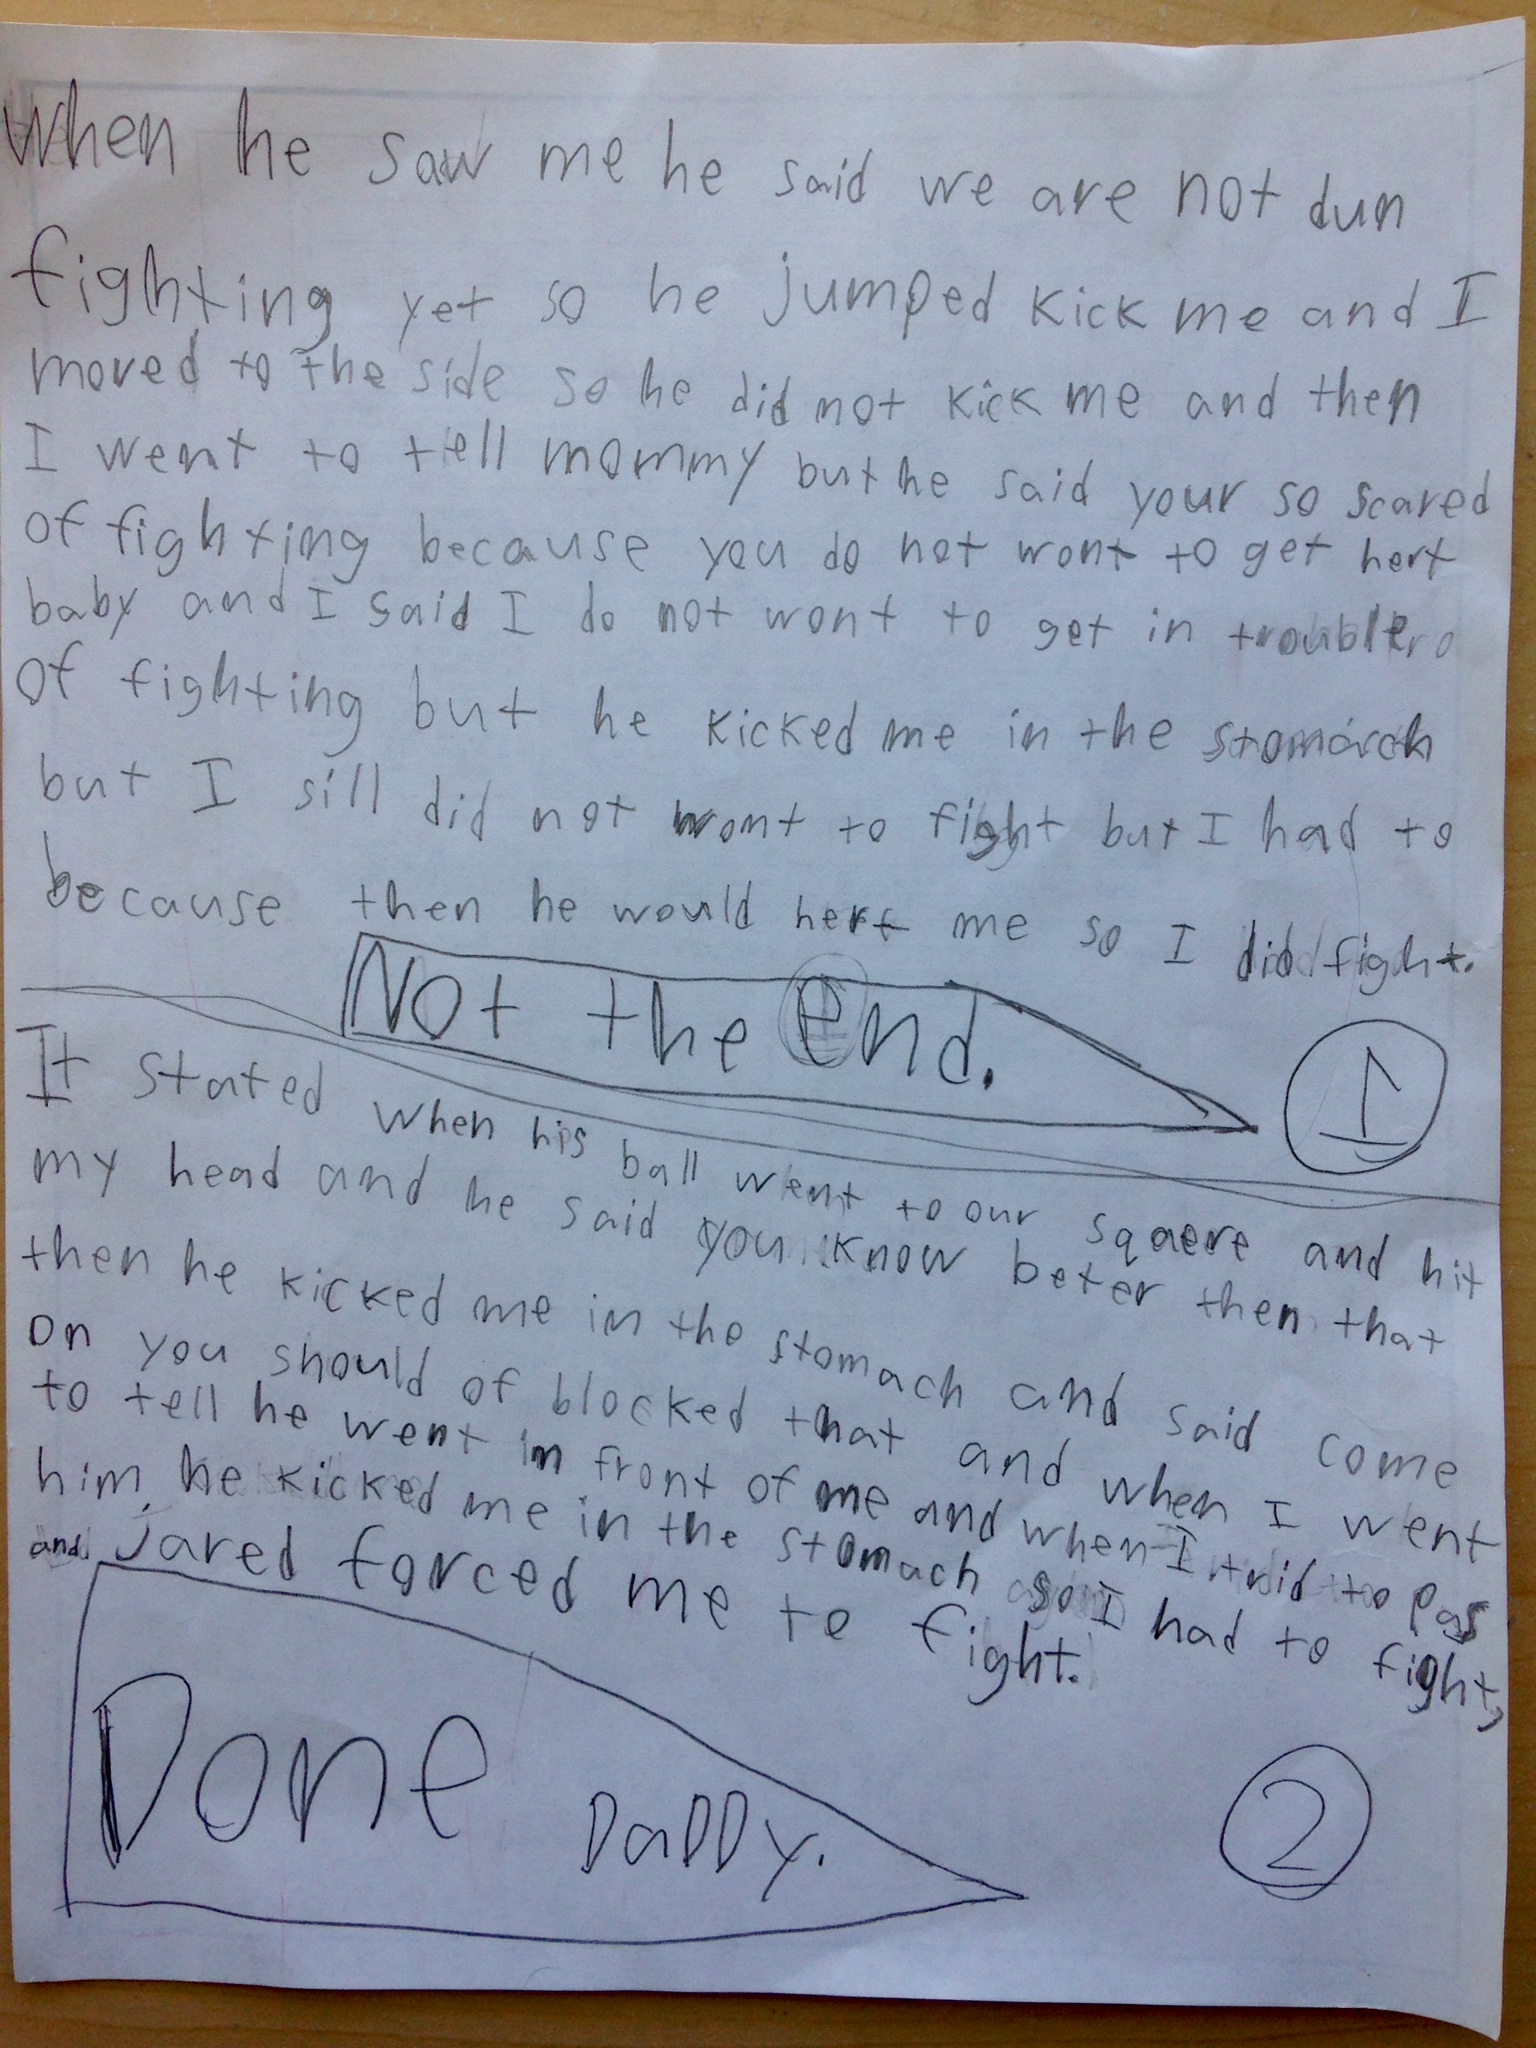 When he saw me he said we are not dun
fighting yet so he jumped kick me and I
moved to the side so he did not kick me and then
I went to tell mommy but he said your so scared
of fighting because you do not wont to get hert
baby and I said I do not wont to get in trouble
of fighting but he kicked me in the stomarch
but I sill did not wont to fight but I had to
because then he would hert me so I did fight.
Not the end.
1
It stated when his ball went to our sqaere and hit
my head and he said you know beter then that
then he kicked me in the stomach and said come
on you should of blocked that and when I went
to tell he went in front of me and when I trid to pas
him, he kicked me in the stomach so I had to fight,
and jared forced me to fight.
Done Daddy.
2